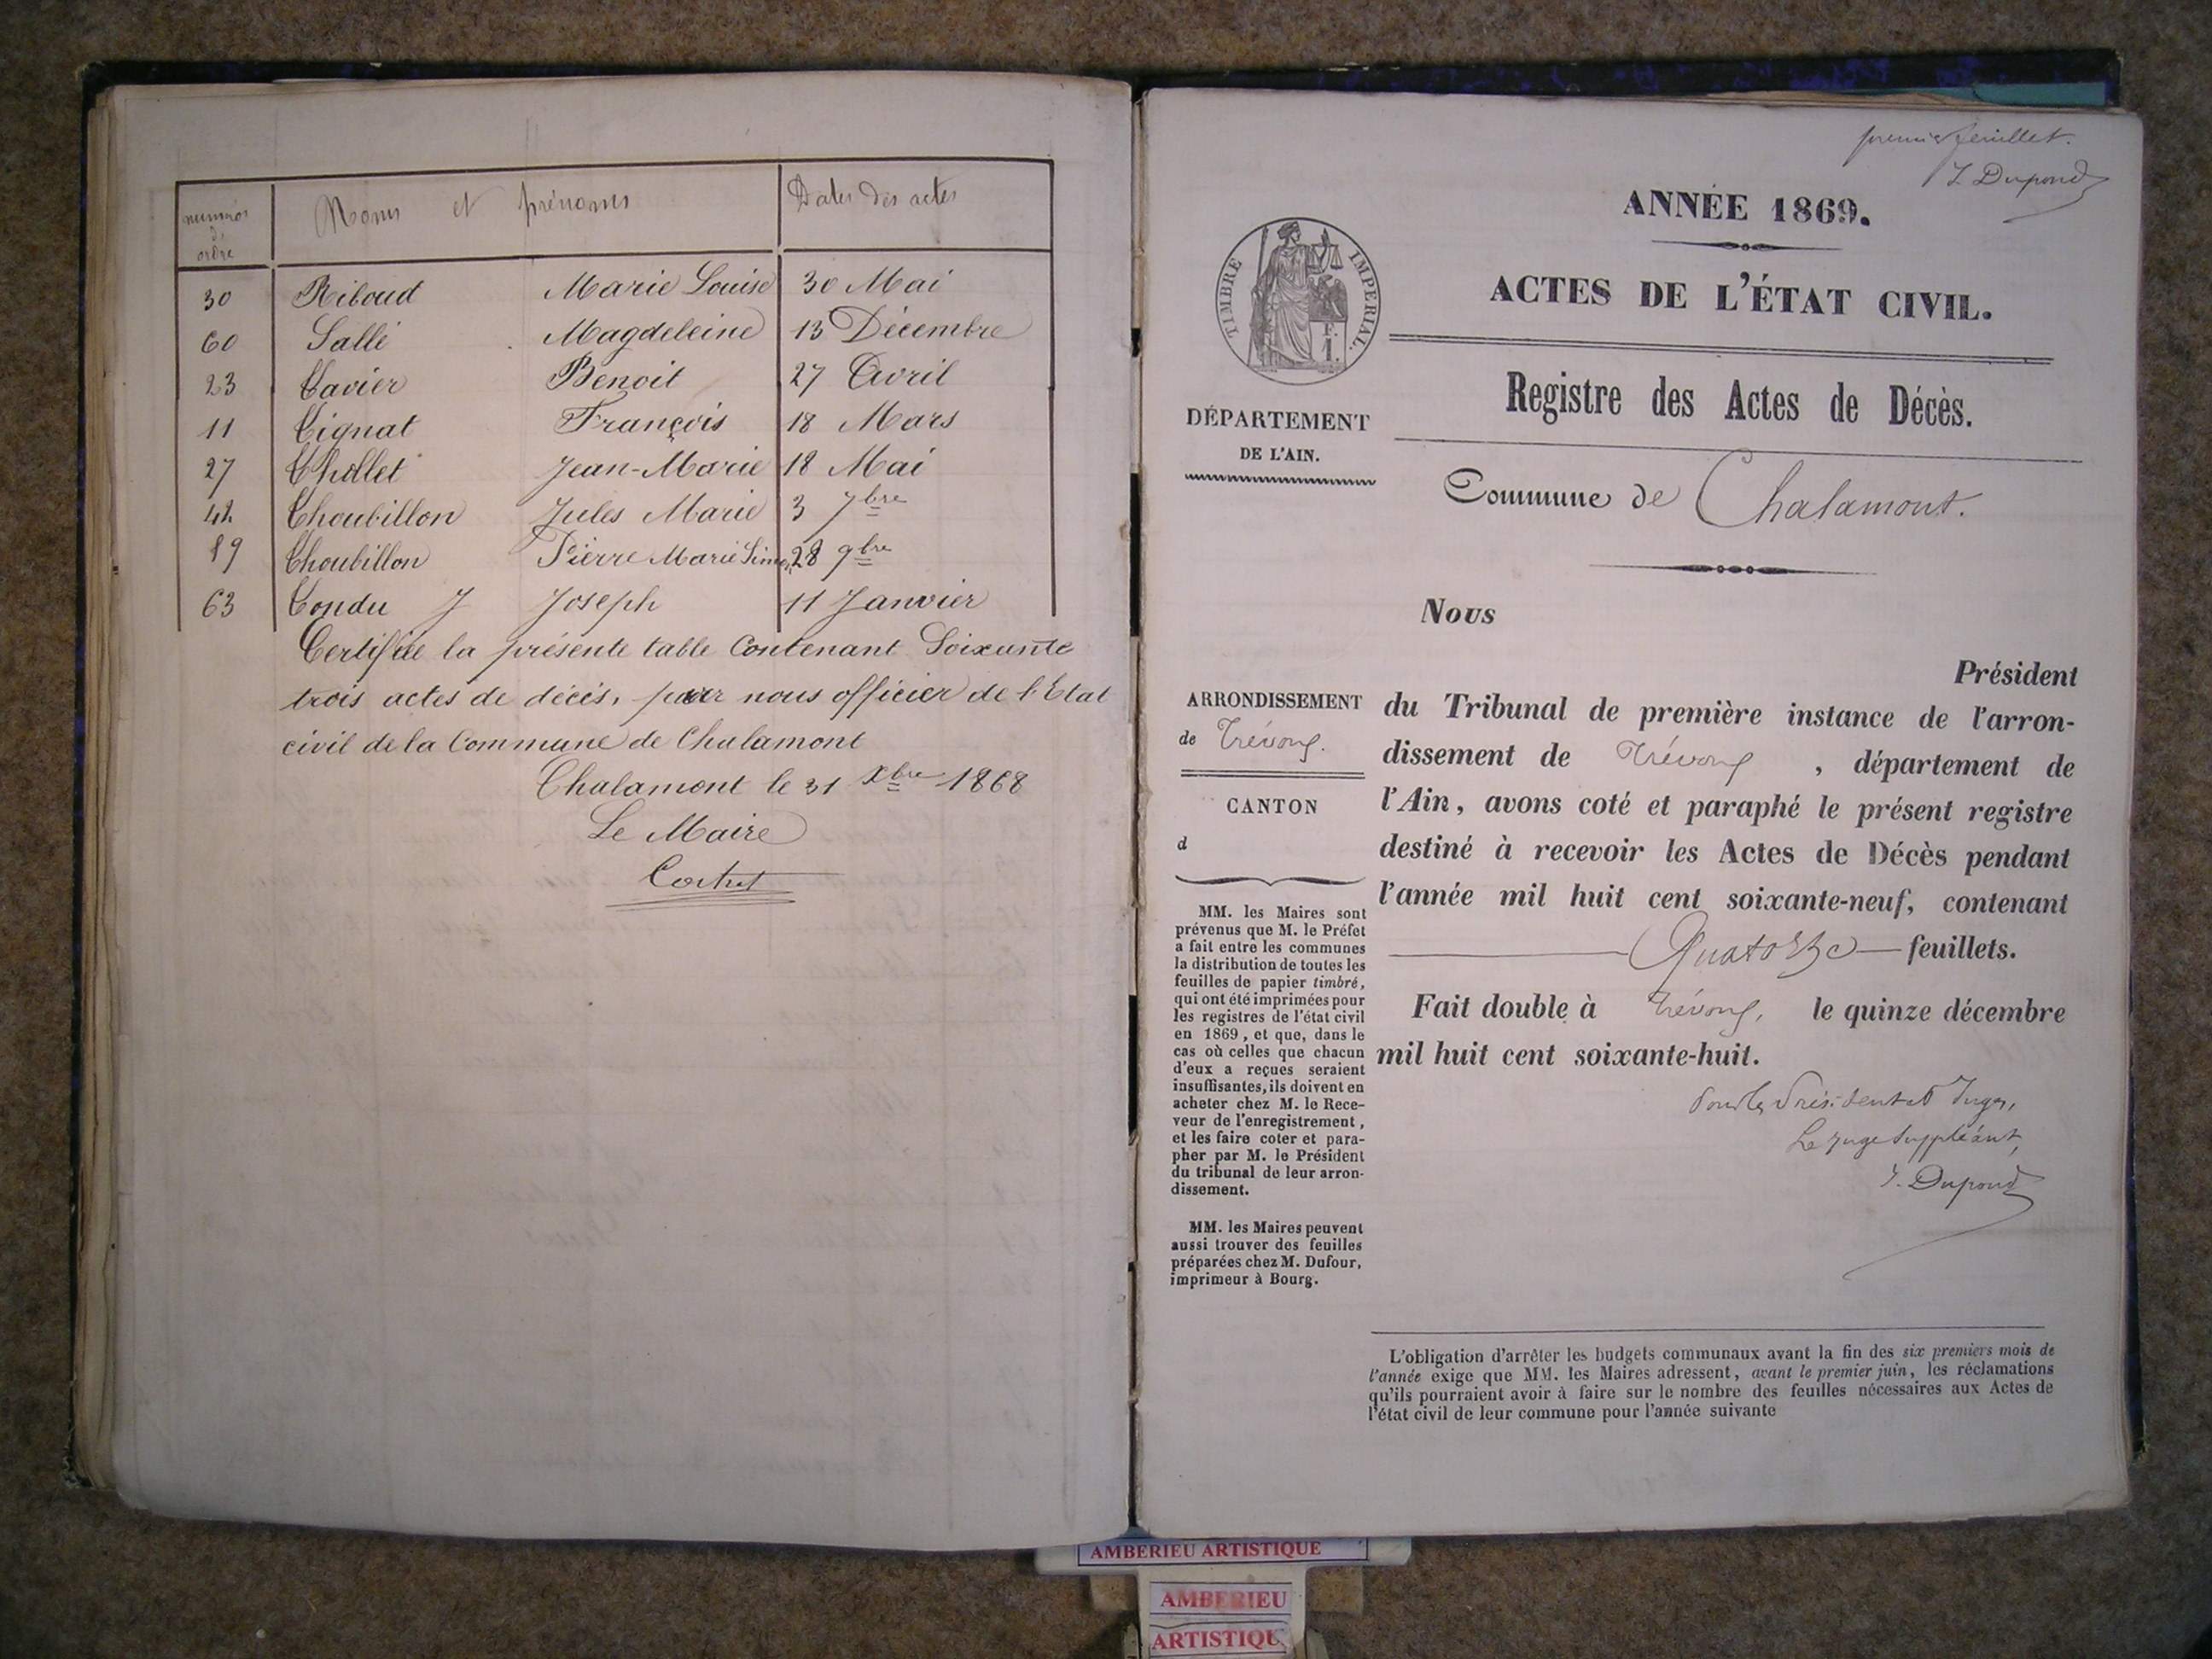 numéros de ordre Noms et prénoms Dates des actes
30 Riboud Marie Louise 30 Mai
60 Sallé Magdeleine 13 Décembre
23 Tavier Benoit 27 Avril
11 Tignat François 18 Mars
27 Thollet Jean-Marie 18 Mai
42 Thoubillon Jules Marie 3 7bre
Thoubillon Pièrre Marie Simon 28 9bre
63 Tondu J Joseph 11 Janvier
Certifiée la présente table Contenant Soixante
trois actes de décès, par nous officier de l'Etat
civil de la Commune de Chalamont
Chalamont le 31 Xbre 1868
Le Maire
premier feuillet.
J. Dupond
ANNÉE 1869.
TIMBRE IMPERIAL.
F.
1.
ACTES DE L'ÉTAT CIVIL.
Registre des Actes de Décès.
DÉPARTEMENT
DE L'AIN.
Commune de Chalamont.
Nous
Président
ARRONDISSEMENT
de Trévoux.
CANTON
d
du Tribunal de première instance de l'arron-
dissement de Trévoux , département de
l'Ain, avons coté et paraphé le présent registre
destiné à recevoir les Actes de Décès pendant
l'année mil huit cent soixante-neuf, contenant
Quatorze feuillets.
Fait double à Trévoux, le quinze décembre
mil huit cent soixante-huit.
Le juge Suppléant,
J. Dupond
MM. les Maires sont
prévenus que M. le Préfet
a fait entre les communes
la distribution de toutes les
feuilles de papier timbré,
qui ont été imprimées pour
les registres de l'état civil
en 1869, et que, dans le
cas où celles que chacun
d'eux a reçues seraient
insuffisantes, ils doivent en
acheter chez M. le Rece-
veur de l'enregistrement,
et les faire coter et para-
pher par M. le Président
du tribunal de leur arron-
dissement.
MM. les Maires peuvent
aussi trouver des feuilles
préparées chez M. Dufour,
imprimeur à Bourg.
L'obligation d'arrêter les budgets communaux avant la fin des six premiers mois de
l'année exige que MM. les Maires adressent, avant le premier juin, les réclamations
qu'ils pourraient avoir à faire sur le nombre des feuilles nécessaires aux Actes de
l'état civil de leur commune pour l'année suivante
AMBERIEU ARTISTIQUE
AMBERIEU
ARTISTIQU